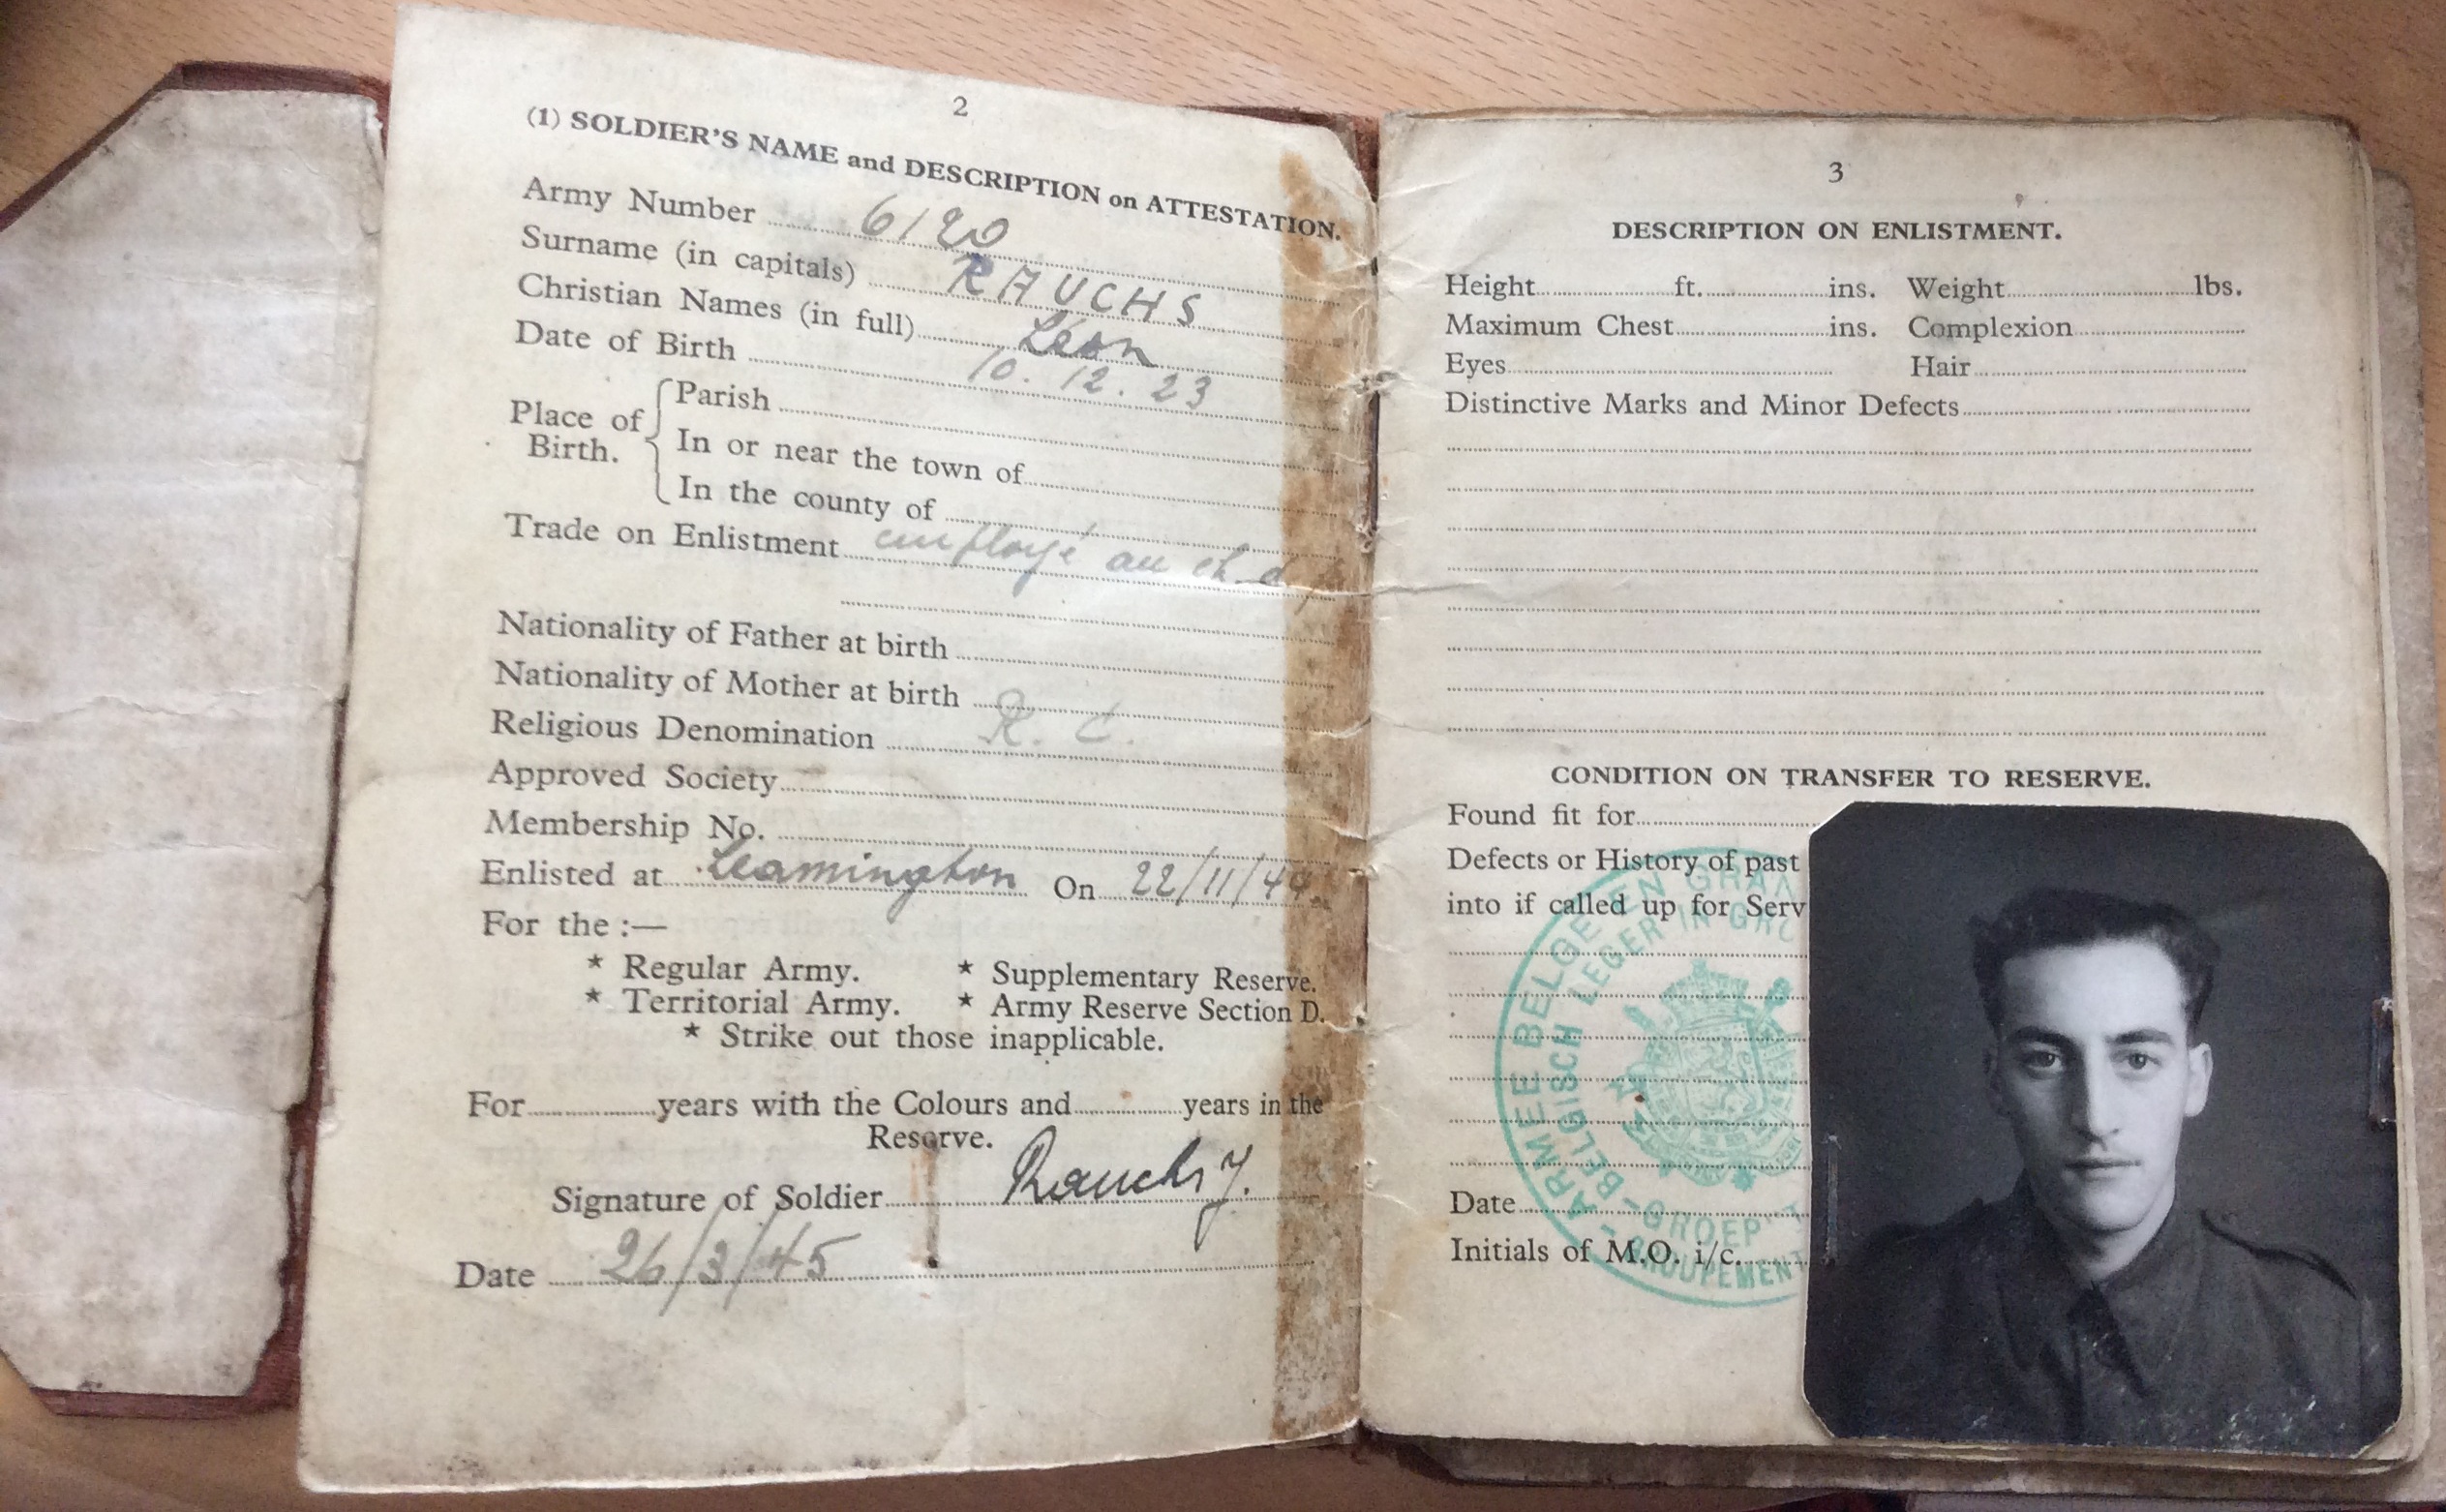 2
(1) SOLDIER'S NAME and DESCRIPTION on ATTESTATION.
Army Number 6120
Surname (in capitals) RAUCHS
Christian Names (in full) Léon
Date of Birth 10. 12. 23
Place of Birth.
Parish
In or near the town of
In the county of
Trade on Enlistment employé au ch. d
Nationality of Father at birth
Nationality of Mother at birth
Religious Denomination R. C.
Approved Society
Membership No.
Enlisted at Leamington On 22/11/44
For the :—
* Regular Army. * Supplementary Reserve.
* Territorial Army. * Army Reserve Section D.
* Strike out those inapplicable.
For years with the Colours and years in the
Reserve.
Signature of Soldier Rauchs J.
Date 26/3/45
3
DESCRIPTION ON ENLISTMENT.
Height ft. ins. Weight lbs.
Maximum Chest ins. Complexion
Eyes Hair
Distinctive Marks and Minor Defects
CONDITION ON TRANSFER TO RESERVE.
Found fit for
Defects or History of past
into if called up for Serv
Date
Initials of M.O. i/c.
ARMEE BELGE EN GRAN
BELGISCH LEGER IN GRO
GROEP
GROUPEMENT